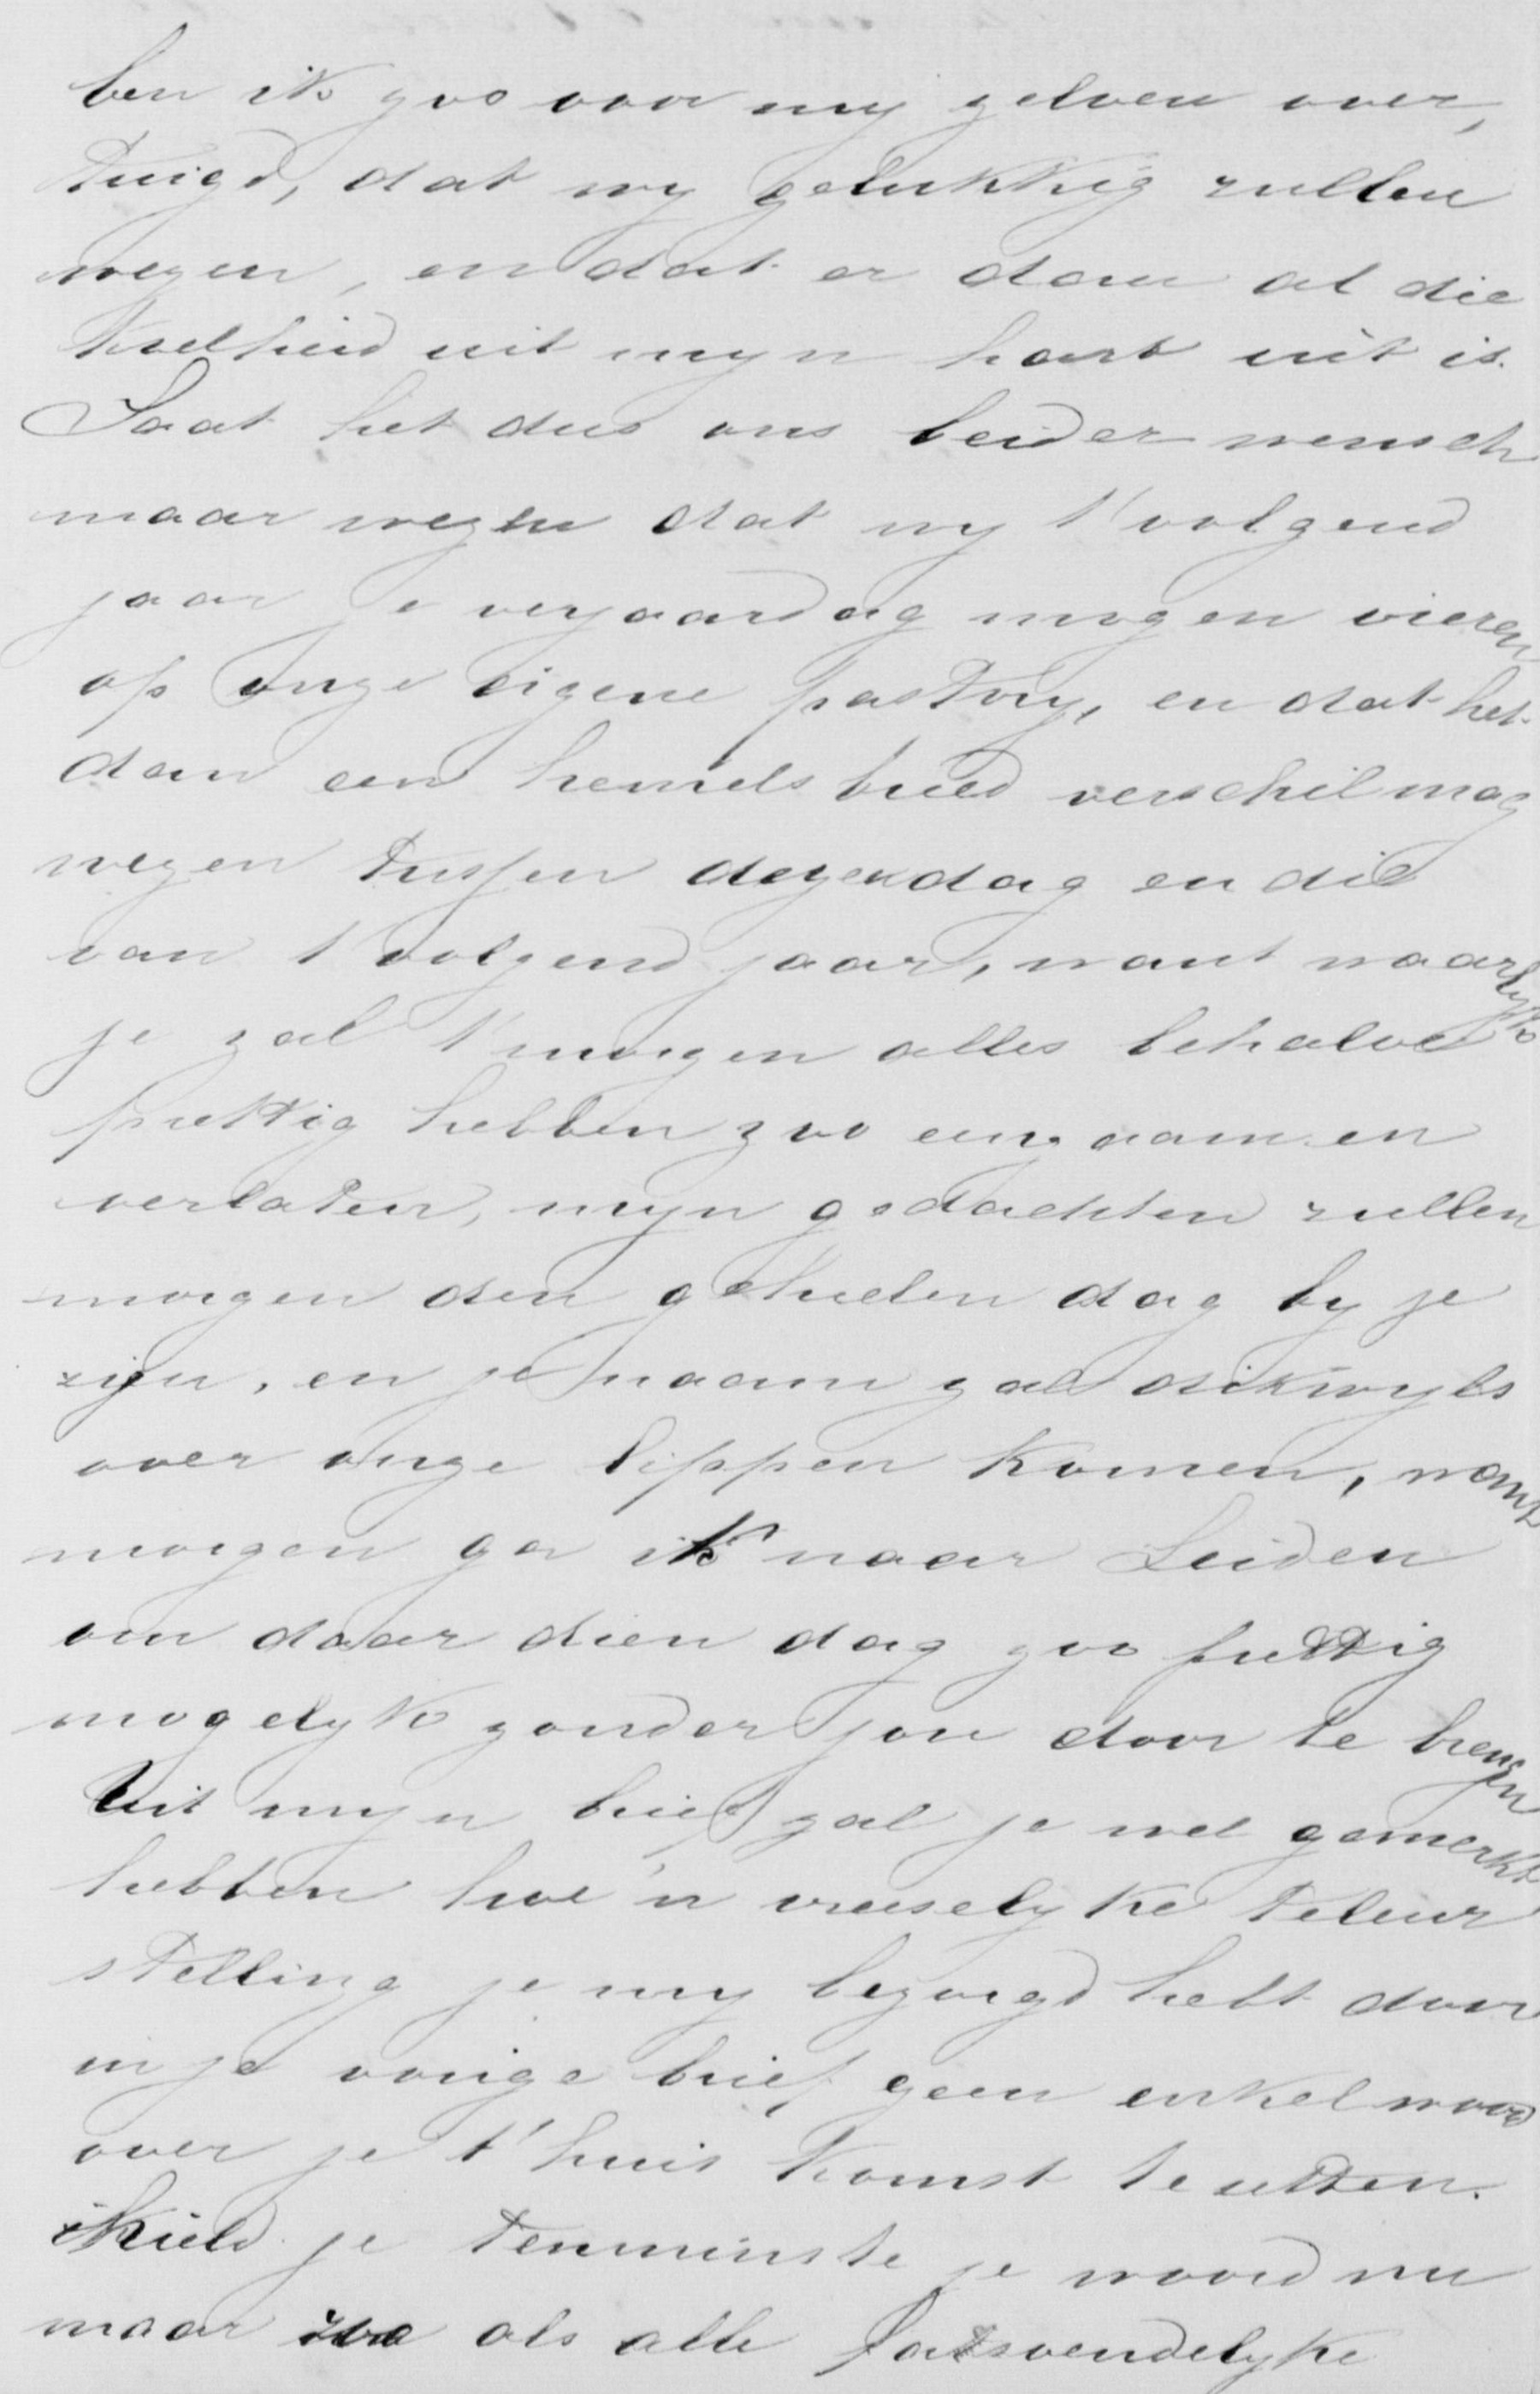 ben ik zoo voor my zelven over,
tuigd, dat wy gelukkig zullen
wezen, en dat er dan al die
koelheid uit myn hart uit is.
Laat het dus ons beider wensch
maar wezen dat wy 't volgend
jaar je verjaardag mogen vieren
op onze eigene pastory, en dat het
dan een hemels breed verschil mag
wezen tusschen dezen dag en die
van 't volgend jaar, want waarlyk
je zal 't morgen alles behalve
prettig hebben zoo eenzaam en
verlaten, myn gedachten zullen
morgen den geheelen dag by je
zijn, en je naam zal dikwyls
over onze lippen komen, want
morgen ga ik naar Leiden
om daar dien dag zoo prettig
mogelyk zonder jou door te brengen
Uit myn brief zal je wel gemerkt
hebben hoe'n vreeselyke teleur
stelling je my bezorgd hebt door
in je vorige brief geen enkel woord
over je t'huis komst te uitten.
hield je tenminste je woord nu
maar zoo als alle fatsoendelyke